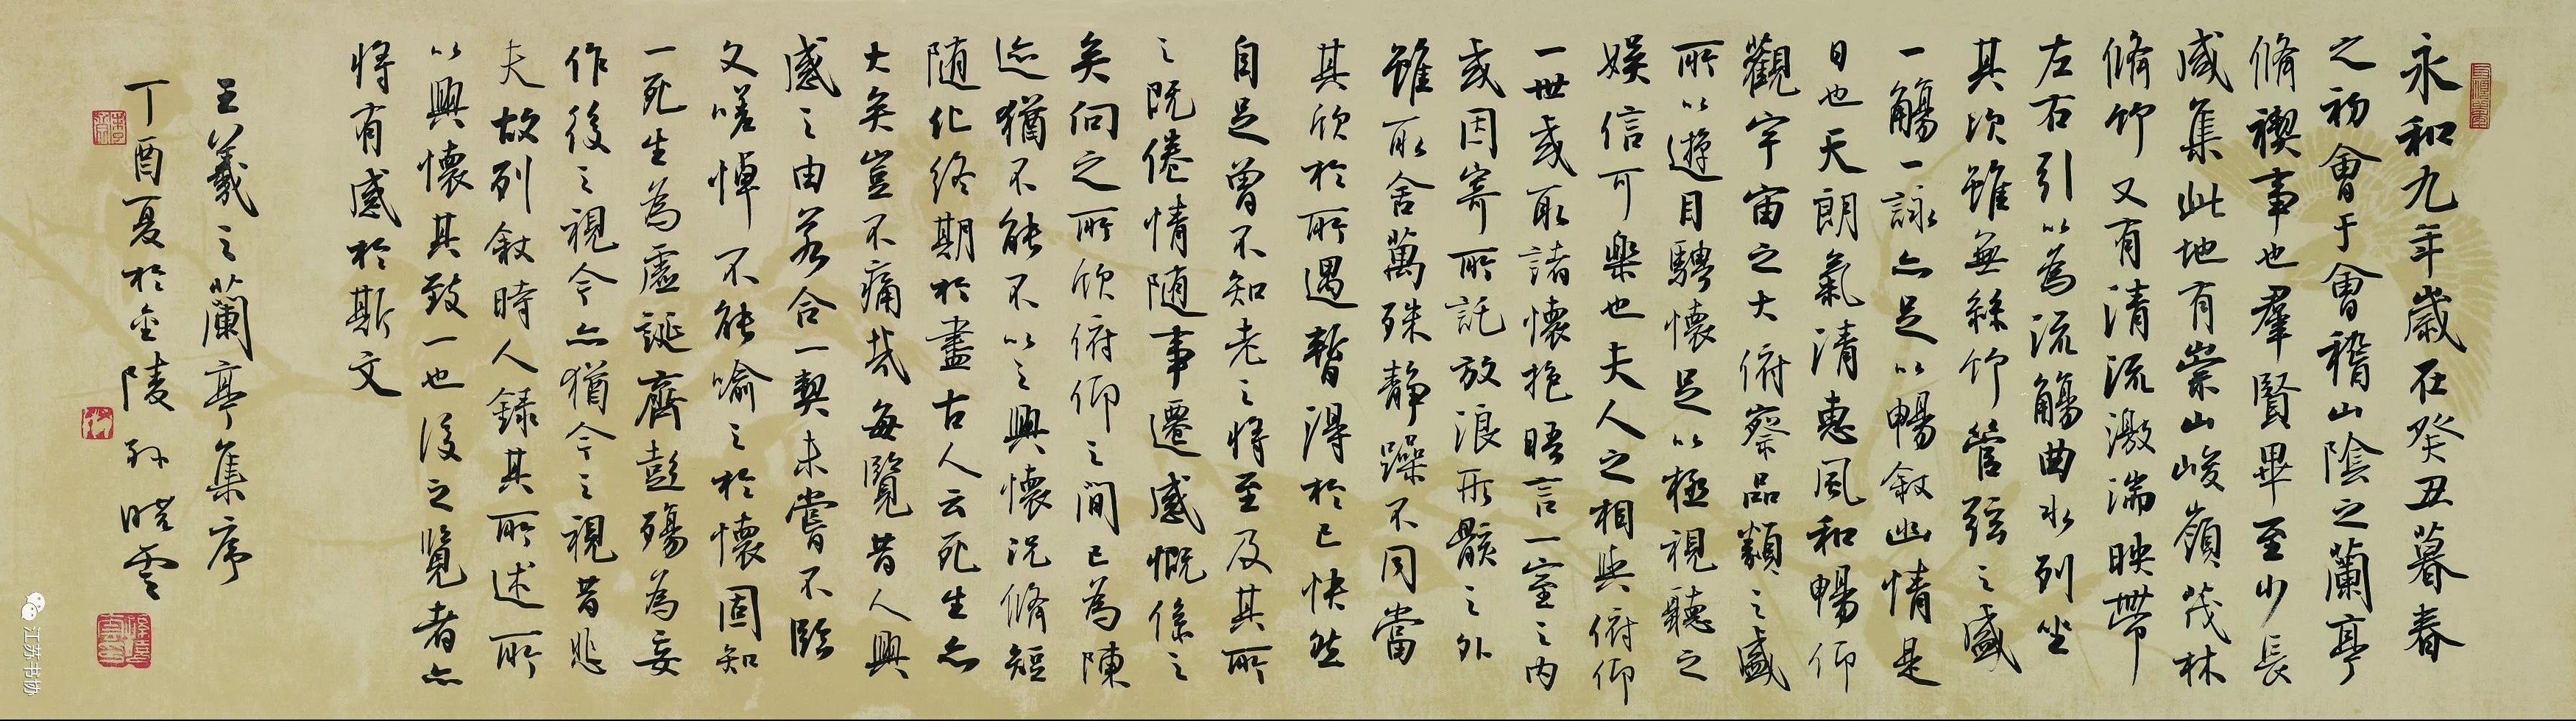 永和九年歲在癸丑暮春
之初會于會稽山陰之蘭亭
脩禊事也羣賢畢至少長
咸集此地有崇山峻嶺茂林
脩竹又有清流激湍映帶
左右引以為流觴曲水列坐
其次雖無絲竹管弦之盛
一觴一詠亦足以暢敘幽情是
日也天朗氣清惠風和暢仰
觀宇宙之大俯察品類之盛
所以遊目騁懷足以極視聽之
娛信可樂也夫人之相與俯仰
一世或取諸懷抱晤言一室之內
或因寄所託放浪形骸之外
雖取舍萬殊靜躁不同當
其欣於所遇暫得於己快然
自足曾不知老之將至及其所
之既倦情随事遷感慨係之
矣向之所欣俯仰之間已為陳
迹猶不能不以之興懷況脩短
随化終期於盡古人云死生亦
大矣豈不痛哉每覽昔人興
感之由若合一契未嘗不臨
文嗟悼不能喻之於懷固知
一死生為虛誕齊彭殤為妄
作後之視今亦猶今之視昔悲
夫故列敘時人錄其所述所
以興懷其致一也後之覽者亦
將有感於斯文
王羲之蘭亭集序
丁酉夏於金陵孫曉雲
江苏书协